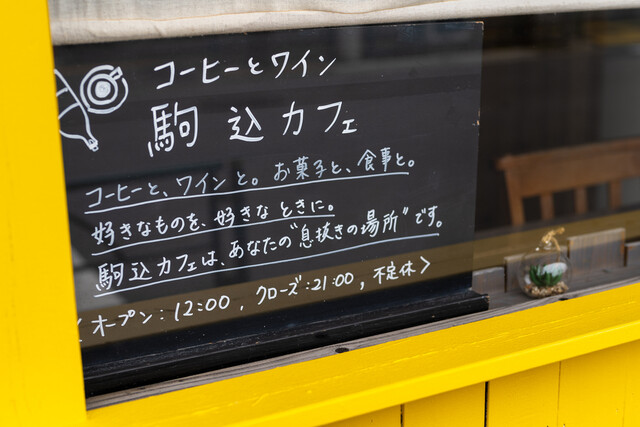 コーヒーとワイン
駒込カフェ
コーヒーと、ワインと。お菓子と、食事と。
好きなものを、好きなときに。
駒込カフェは、あなたの"息抜きの場所"です。
〈オープン:12:00, クローズ:21:00, 不定休〉